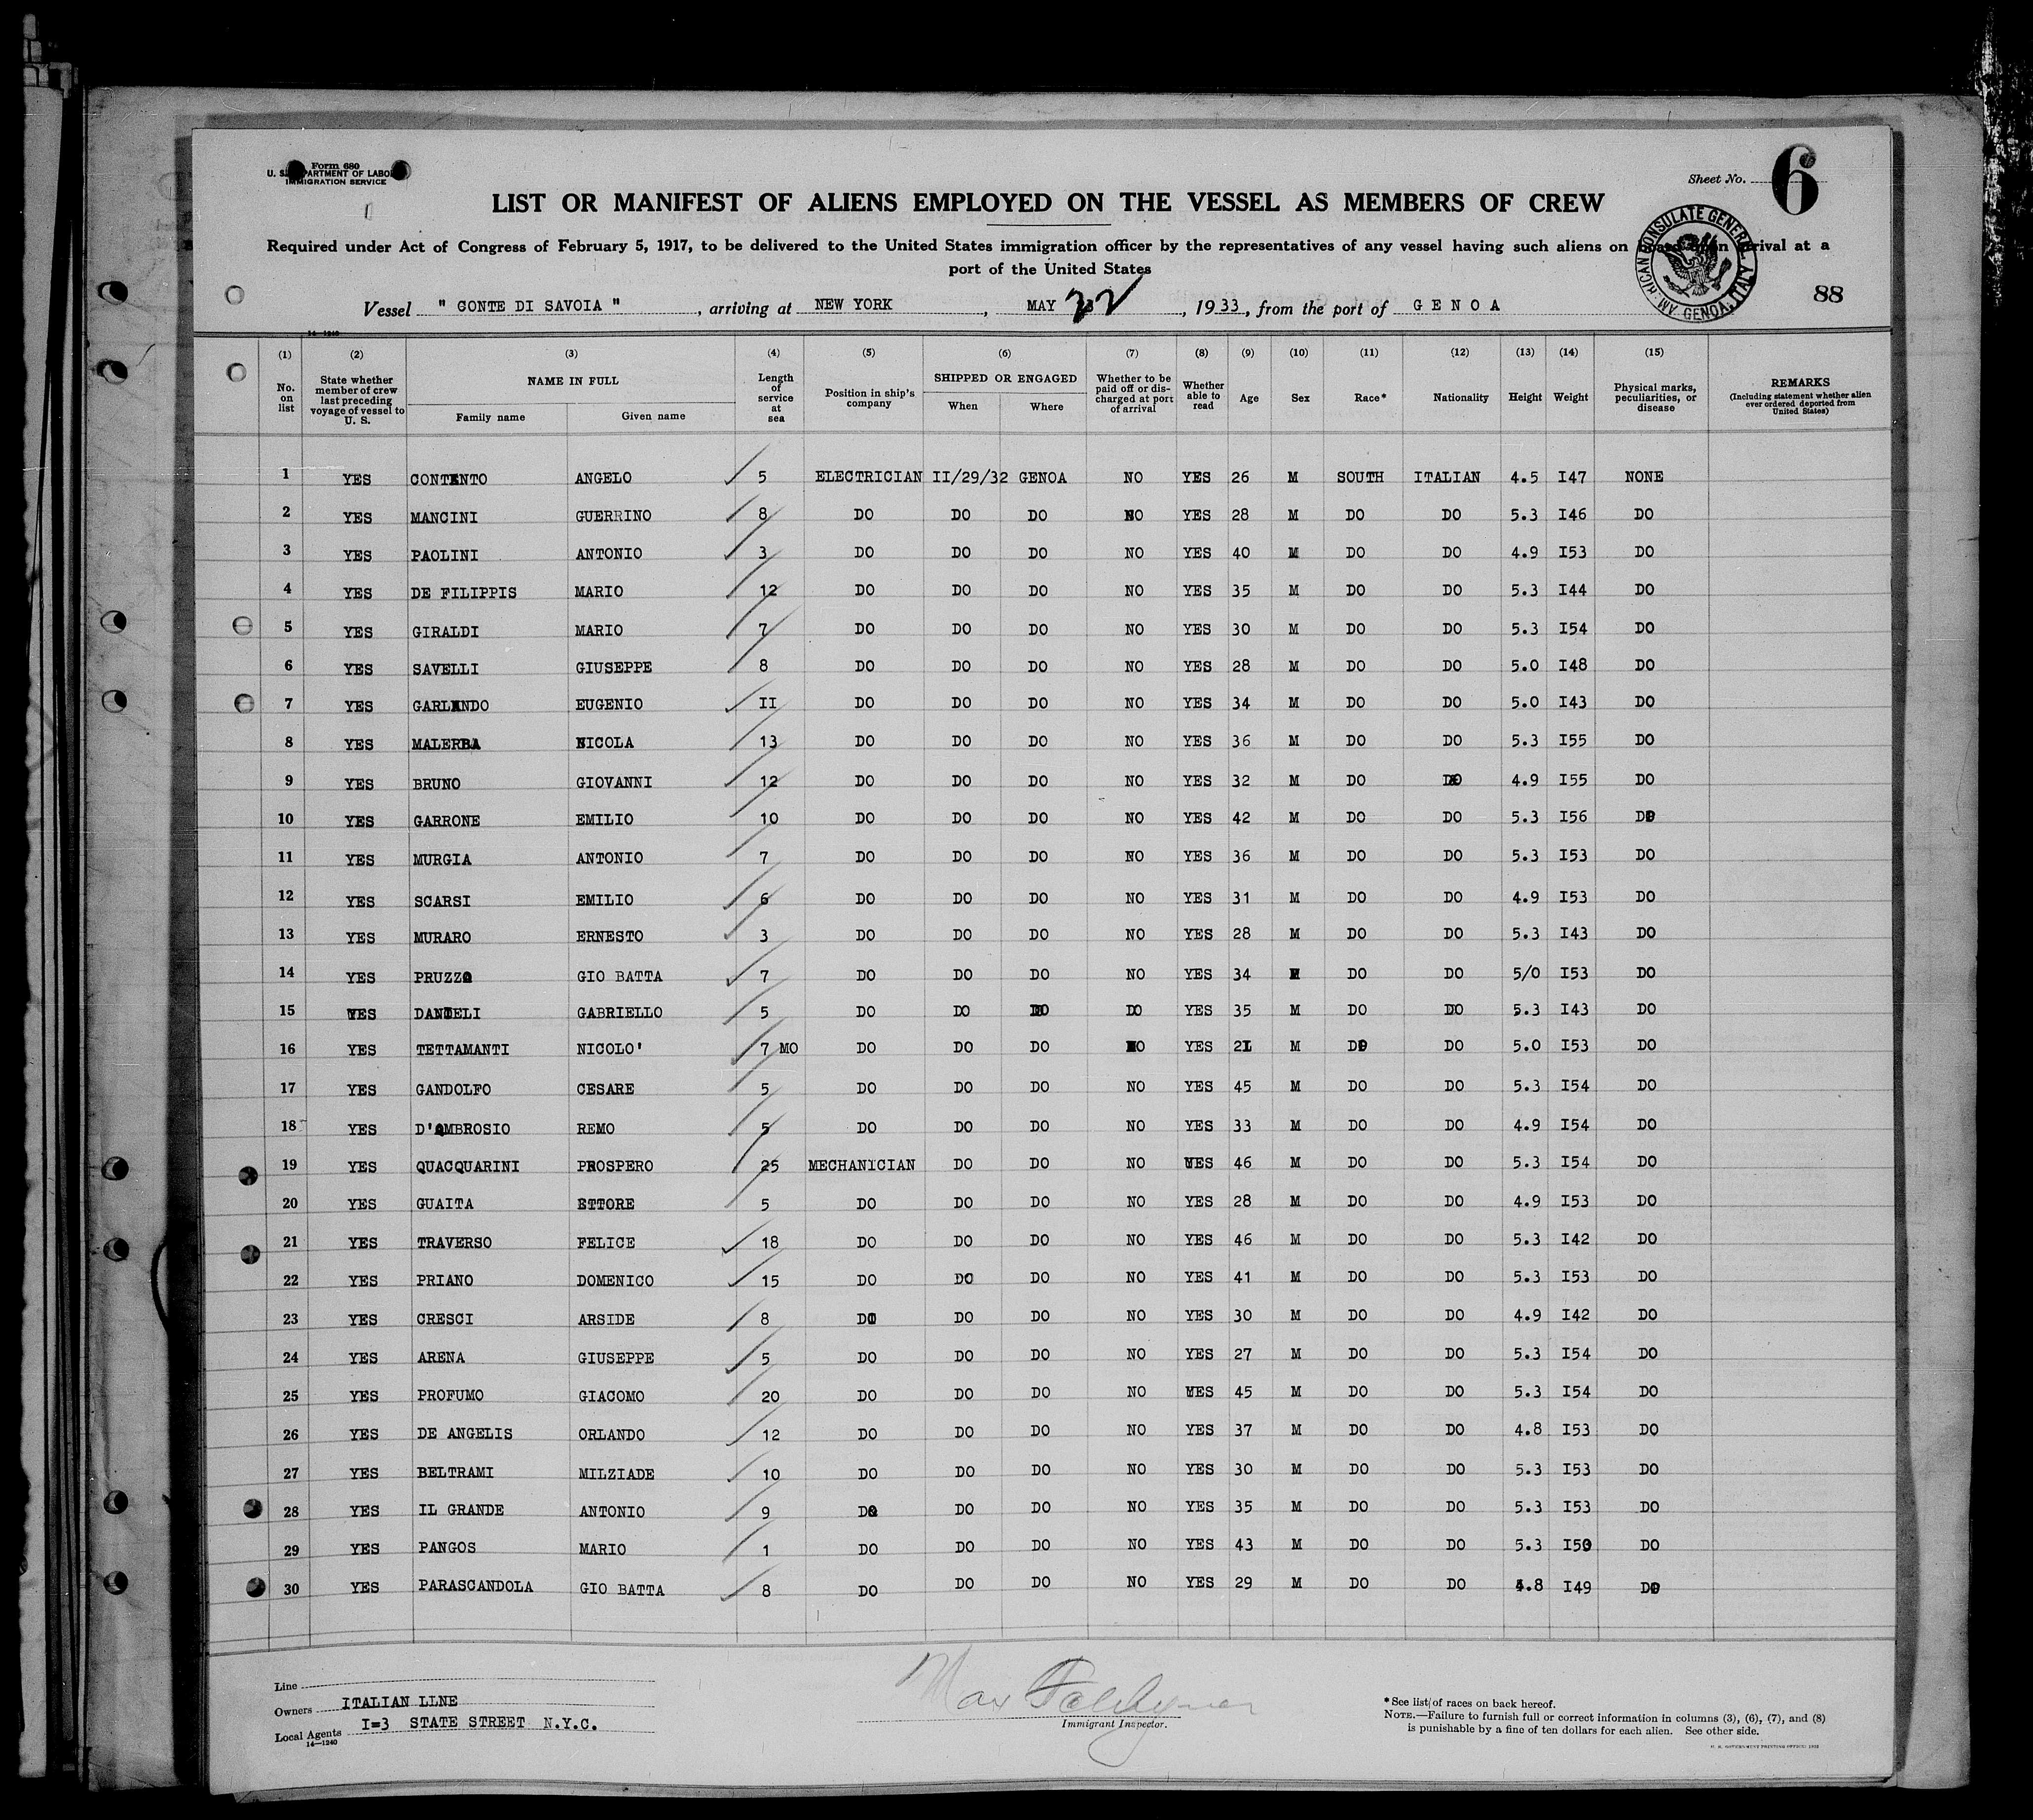 Form 680
U. S. DEPARTMENT OF LABOR
IMMIGRATION SERVICE
Sheet No. 6
LIST OR MANIFEST OF ALIENS EMPLOYED ON THE VESSEL AS MEMBERS OF CREW
Required under Act of Congress of February 5, 1917, to be delivered to the United States immigration officer by the representatives of any vessel having such aliens on board upon arrival at a
port of the United States
AMERICAN CONSULATE GENERAL GENOA, ITALY
Vessel " CONTE DI SAVOIA ", arriving at NEW YORK, MAY 22, 1933, from the port of GENOA
88
14-1240
(1) (2) (3) (4) (5) (6) (7) (8) (9) (10) (11) (12) (13) (14) (15)
No. on list
State whether member of crew last preceding voyage of vessel to U. S.
NAME IN FULL
Family name
Given name
Length of service at sea
Position in ship's company
SHIPPED OR ENGAGED
When
Where
Whether to be paid off or discharged at port of arrival
Whether able to read
Age
Sex
Race*
Nationality
Height
Weight
Physical marks, peculiarities, or disease
REMARKS
(Including statement whether alien ever ordered deported from United States)
1 YES CONTENTO ANGELO 5 ELECTRICIAN II/29/32 GENOA NO YES 26 M SOUTH ITALIAN 4.5 I47 NONE
2 YES MANCINI GUERRINO 8 DO DO DO NO YES 28 M DO DO 5.3 I46 DO
3 YES PAOLINI ANTONIO 3 DO DO DO NO YES 40 M DO DO 4.9 I53 DO
4 YES DE FILIPPIS MARIO 12 DO DO DO NO YES 35 M DO DO 5.3 I44 DO
5 YES GIRALDI MARIO 7 DO DO DO NO YES 30 M DO DO 5.3 I54 DO
6 YES SAVELLI GIUSEPPE 8 DO DO DO NO YES 28 M DO DO 5.0 I48 DO
7 YES GARLANDO EUGENIO II DO DO DO NO YES 34 M DO DO 5.0 I43 DO
8 YES MALERBA NICOLA 13 DO DO DO NO YES 36 M DO DO 5.3 I55 DO
9 YES BRUNO GIOVANNI 12 DO DO DO NO YES 32 M DO DO 4.9 I55 DO
10 YES GARRONE EMILIO 10 DO DO DO NO YES 42 M DO DO 5.3 I56 DO
11 YES MURGIA ANTONIO 7 DO DO DO NO YES 36 M DO DO 5.3 I53 DO
12 YES SCARSI EMILIO 6 DO DO DO NO YES 31 M DO DO 4.9 I53 DO
13 YES MURARO ERNESTO 3 DO DO DO NO YES 28 M DO DO 5.3 I43 DO
14 YES PRUZZO GIO BATTA 7 DO DO DO NO YES 34 M DO DO 5/0 I53 DO
15 YES DANIELI GABRIELLO 5 DO DO DO DO YES 35 M DO DO 5.3 I43 DO
16 YES TETTAMANTI NICOLO' 7 MO DO DO DO NO YES 21 M DO DO 5.0 I53 DO
17 YES GANDOLFO CESARE 5 DO DO DO NO YES 45 M DO DO 5.3 I54 DO
18 YES D'AMBROSIO REMO 5 DO DO DO NO YES 33 M DO DO 4.9 I54 DO
19 YES QUACQUARINI PROSPERO 25 MECHANICIAN DO DO NO YES 46 M DO DO 5.3 I54 DO
20 YES GUAITA ETTORE 5 DO DO DO NO YES 28 M DO DO 4.9 I53 DO
21 YES TRAVERSO FELICE 18 DO DO DO NO YES 46 M DO DO 5.3 I42 DO
22 YES PRIANO DOMENICO 15 DO DO DO NO YES 41 M DO DO 5.3 I53 DO
23 YES CRESCI ARSIDE 8 DO DO DO NO YES 30 M DO DO 4.9 I42 DO
24 YES ARENA GIUSEPPE 5 DO DO DO NO YES 27 M DO DO 5.3 I54 DO
25 YES PROFUMO GIACOMO 20 DO DO DO NO YES 45 M DO DO 5.3 I54 DO
26 YES DE ANGELIS ORLANDO 12 DO DO DO NO YES 37 M DO DO 4.8 I53 DO
27 YES BELTRAMI MILZIADE 10 DO DO DO NO YES 30 M DO DO 5.3 I53 DO
28 YES IL GRANDE ANTONIO 9 DO DO DO NO YES 35 M DO DO 5.3 I53 DO
29 YES PANGOS MARIO 1 DO DO DO NO YES 43 M DO DO 5.3 I50 DO
30 YES PARASCANDOLA GIO BATTA 8 DO DO DO NO YES 29 M DO DO 4.8 I49 DO
Line
Owners ITALIAN LLNE
Local Agents I=3 STATE STREET N.Y.C.
14-1240
Max
Immigrant Inspector.
*See list of races on back hereof.
NOTE.—Failure to furnish full or correct information in columns (3), (6), (7), and (8)
is punishable by a fine of ten dollars for each alien. See other side.
U. S. GOVERNMENT PRINTING OFFICE: 1932